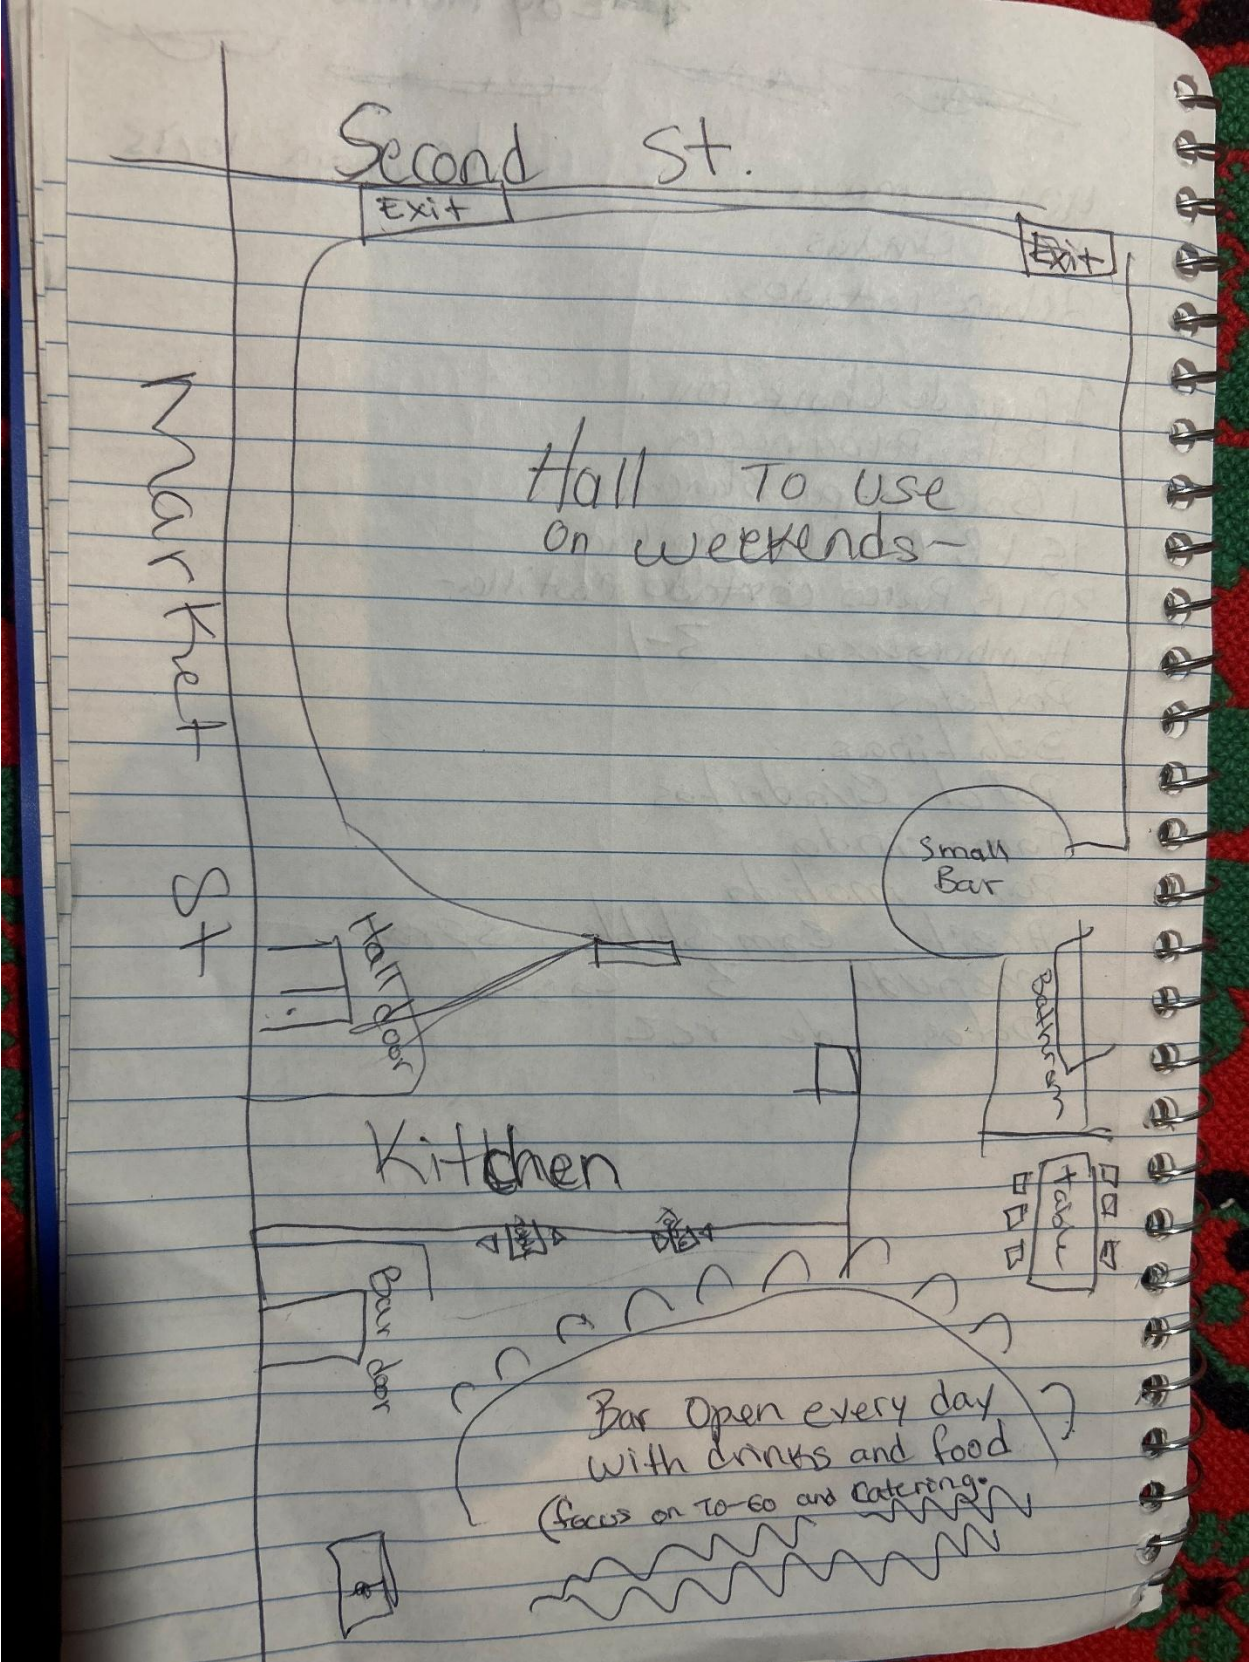 Second St.
Exit
Exit
Market St
Hall To use
on weekends-
Small
Bar
Hall door
Bathroom
Kitchen
table
Bar door
Bar Open every day
with drinks and food
(focus on To-Go and Catering.